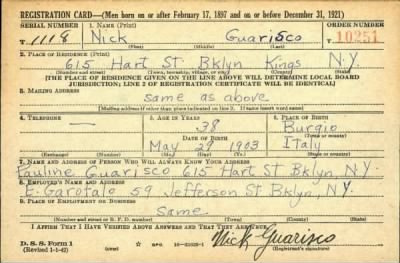 REGISTRATION CARD—(Men born on or after February 17, 1897 and on or before December 31, 1921)
SERIAL NUMBER 1. NAME (Print) ORDER NUMBER
T 1118 Nick Guarisco 10251
(First) (Middle) (Last)
2. PLACE OF RESIDENCE (Print)
615 Hart St Bklyn Kings N.Y.
(Number and street) (Town, township, village, or city) (County) (State)
[THE PLACE OF RESIDENCE GIVEN ON THE LINE ABOVE WILL DETERMINE LOCAL BOARD
JURISDICTION; LINE 2 OF REGISTRATION CERTIFICATE WILL BE IDENTICAL]
3. MAILING ADDRESS
same as above
[Mailing address if other than place indicated on line 2. If same insert word same]
4. TELEPHONE 5. AGE IN YEARS 6. PLACE OF BIRTH
— 38 Burgio
DATE OF BIRTH (Town or county)
May 29 1903 Italy
(Exchange) (Number) (Mo.) (Day) (Yr.) (State or country)
7. NAME AND ADDRESS OF PERSON WHO WILL ALWAYS KNOW YOUR ADDRESS
Pauline Guarisco 615 Hart St Bklyn, N.Y.
8. EMPLOYER'S NAME AND ADDRESS
E. Garofalo 59 Jefferson St Bklyn, N.Y.
9. PLACE OF EMPLOYMENT OR BUSINESS
Same
(Number and street or R. F. D. number) (Town) (County) (State)
I AFFIRM THAT I HAVE VERIFIED ABOVE ANSWERS AND THAT THEY ARE TRUE.
D. S. S. Form 1
(Revised 1-1-42) GPO 16—21630-1 Nick Guarisco